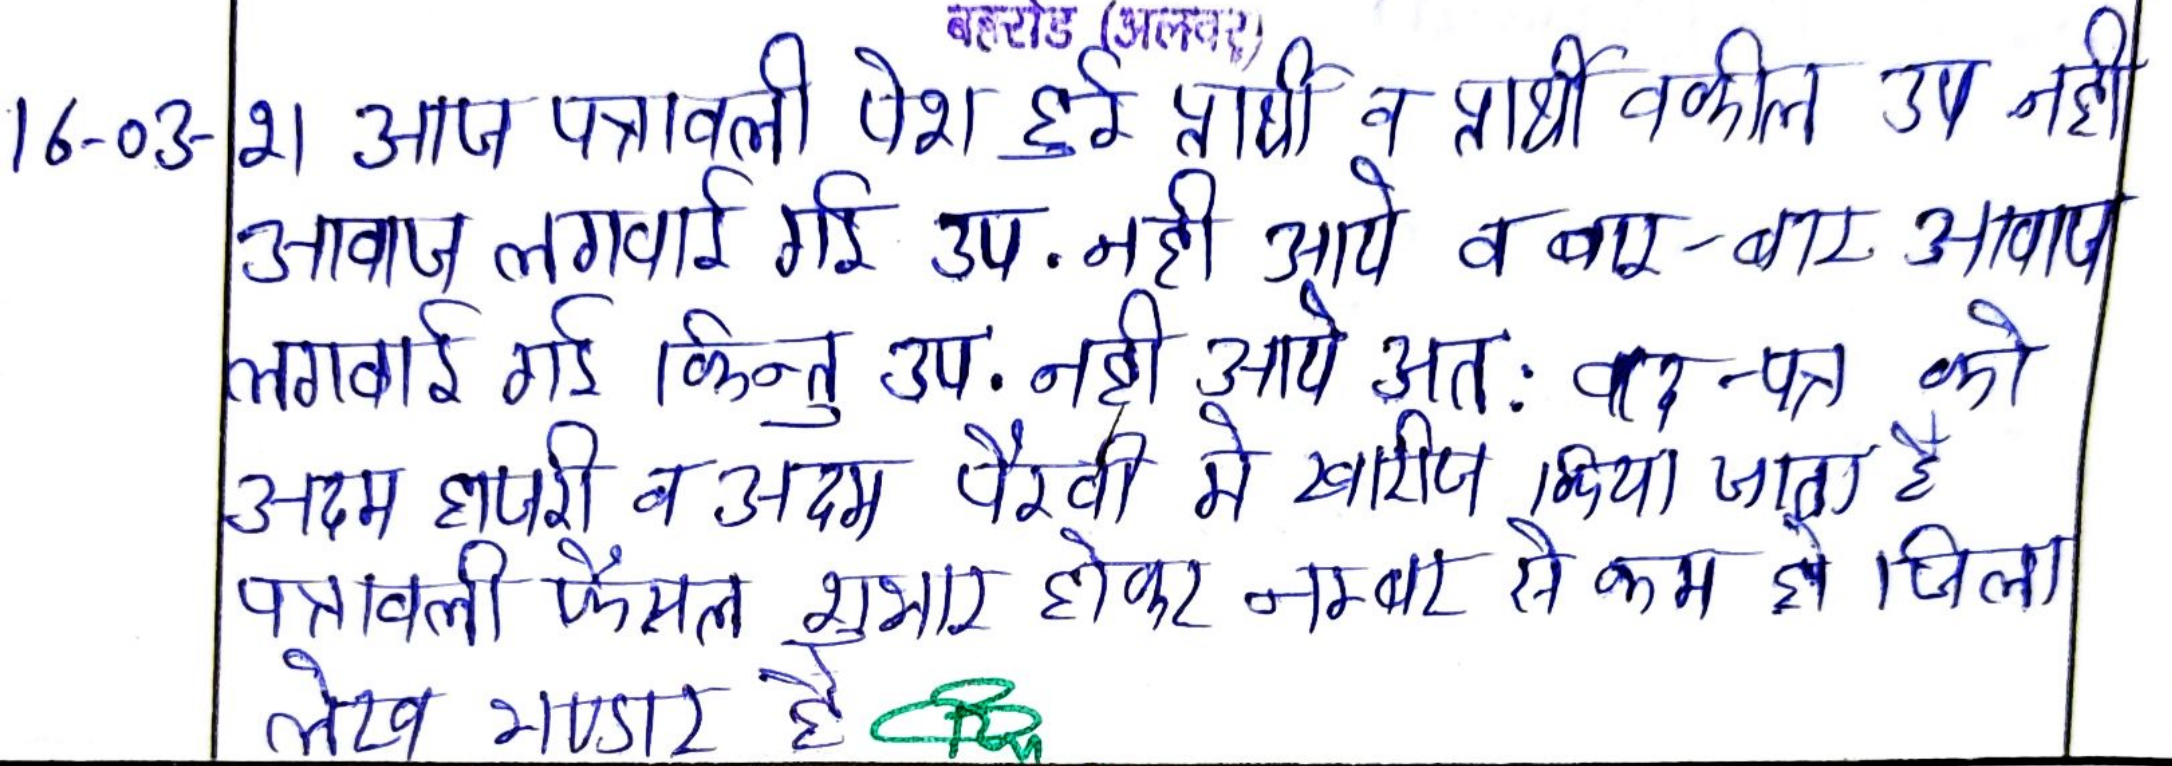 बहरोड (अलवर)
16-03-21 आज पत्रावली पेश हुई प्रार्थी व प्रार्थी वकील उप नही
आवाज लगवाई गई उप. नही आये व बार-बार आवाज
लगवाई गई किन्तु उप. नही आये अत: वाद-पत्र को
अदम हाजरी व अदम पैरवी मे खारीज किया जाता है
पत्रावली फैसल शुमार होकर नम्बर से कम हो जिला
लेख भण्डार है